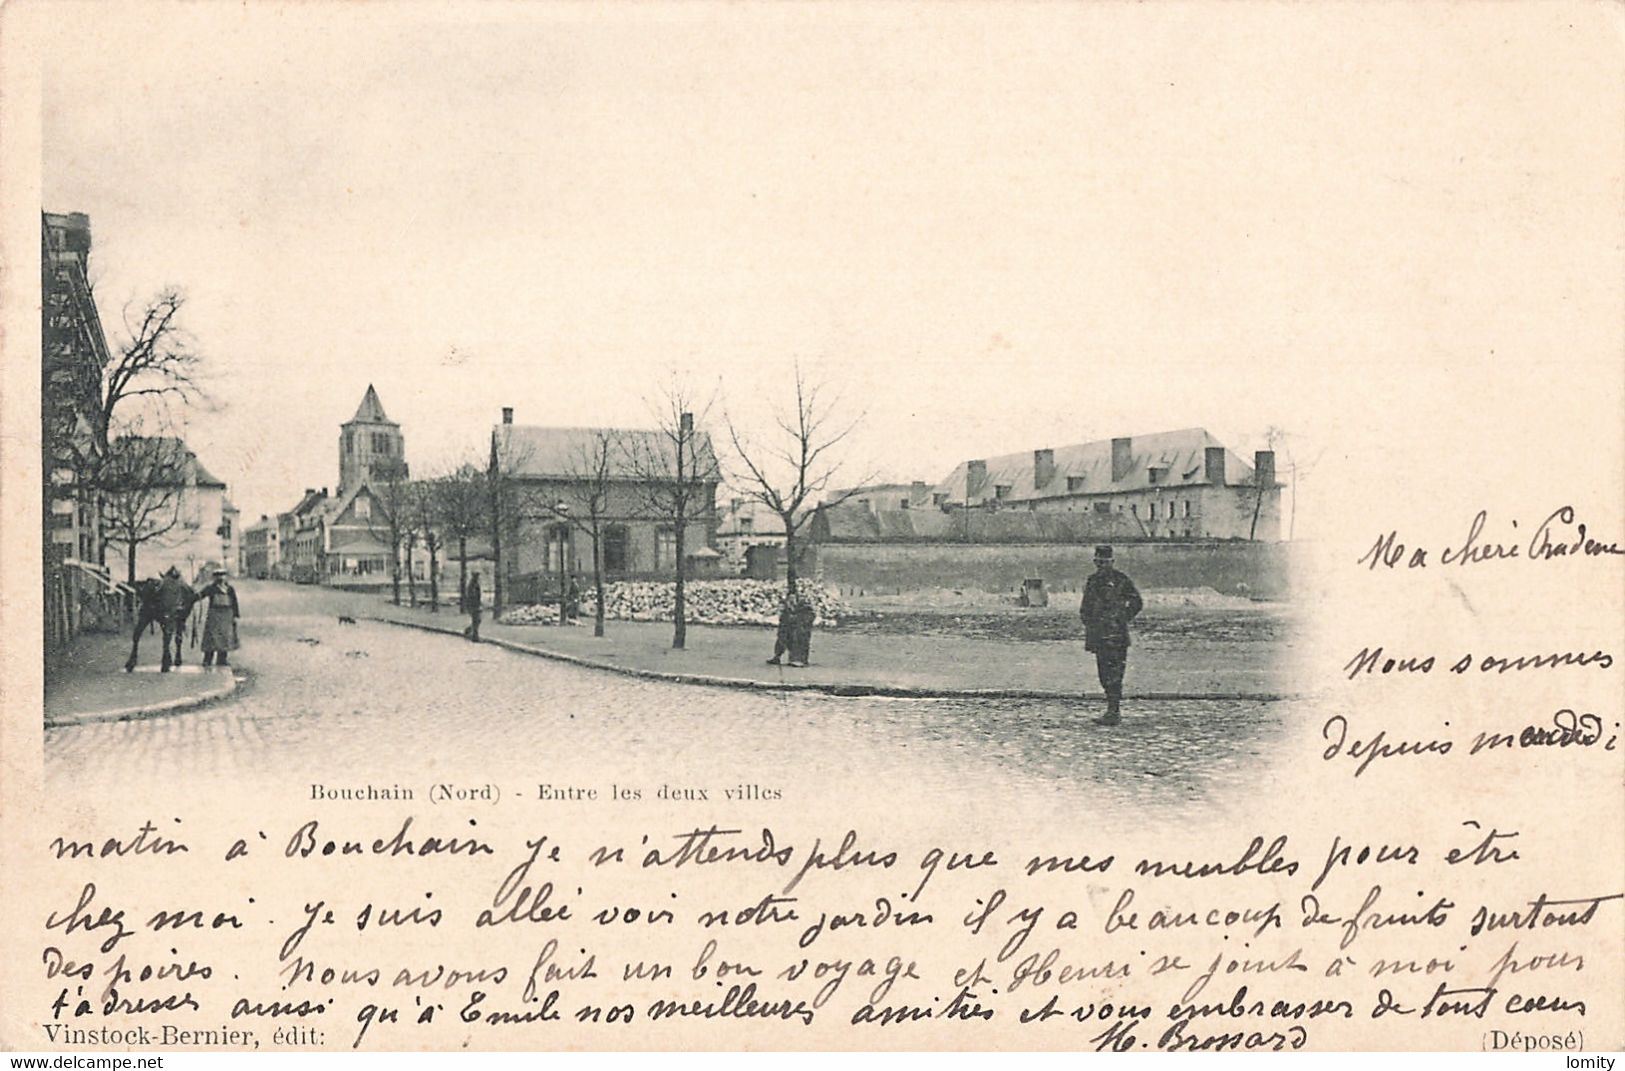 Ma chéri Prudence
Nous sommes
depuis mercredi
Bouchain (Nord) - Entre les deux villes
matin à Bouchain je n'attends plus que mes meubles pour être
chez moi. Je suis allée voir notre jardin il y a beaucoup de fruits surtout
des poires. Nous avons fait un bon voyage et Henri se joint à moi pour
t'adresser ainsi qu'à Emile nos meilleures amitiés et vous embrasser de tout cœur
M. Brossard
Vinstock-Bernier, édit: (Déposé)
https://www.delcampe.net lomity